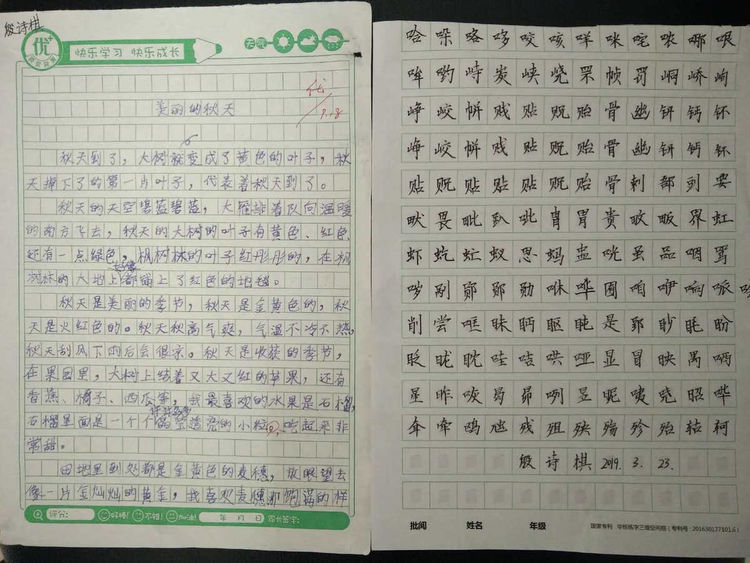 殷诗棋
优+
快乐学习 快乐成长
天气
优
9.18
美丽的秋天
秋天到了，大树就变成了黄色的叶子，秋
天掉下了的第一片叶子，代表着秋天到了。
秋天的天空碧蓝碧蓝，大雁排着队向温暖
的南方飞去，秋天的大树的叶子有黄色、红色，
还有一点绿色，枫树林的叶子红彤彤的，在枫
树林的大地上都铺上了红色的地毯。
秋天是美丽的季节，秋天是金黄色的，秋
天是火红色的。秋天秋高气爽，气温不冷不热，
秋天刮风下雨后会很凉。秋天是收获的季节，
在果园里，大树上结着又大又红的苹果，还有
香蕉、橘子、西瓜等，我最喜欢的水果是石榴，
石榴里面是一个个的小粒，吃起来非
常甜。
田地里到处都是金黄色的麦穗，放眼望去
像一片金灿灿的黄金，我喜欢麦穗那饱满的样
评分： 好棒！ 不错！ 加油！ 年 月 日 家长签字：
哈 咯 哆 咬 咳 咩 咪 咤 哝 哪 哏
哞 哟 峙 炭 峡 峣 罘 帧 罚 峒 峤 峋
峥 峧 帡 贱 贴 贶 贻 骨 幽 钘 钙 钚
峥 峧 帡 贱 贴 贶 贻 骨 幽 钘 钙 钚
贴 贶 贴 贴 贴 贶 贻 骨
畎 畏 毗 趴 呲 胄 胃 贵 畋 畈 界 虹
虾 虼 虻 蚁 思 蚂 盅 咣 虽 品 咽 骂
哕 剐 郧 勋 咻 哗 囿 咱 咿 响 哌
削 尝 哐 昧 眄 眍 盹 是 郢 眇 眊 盼
眨 昽 眈 哇 咭 哄 哑 显 冒 映 禺
星 昨 咴 曷 昴 咧 昱 昵 咦 哓 昭 哔
牵 残 殂 殃 殇 殄 殆 轱 轲
殷诗棋 2019. 3. 23.
批阅 姓名 年级
国家专利 学校练字三维空间班（专利号：201630177101.6）